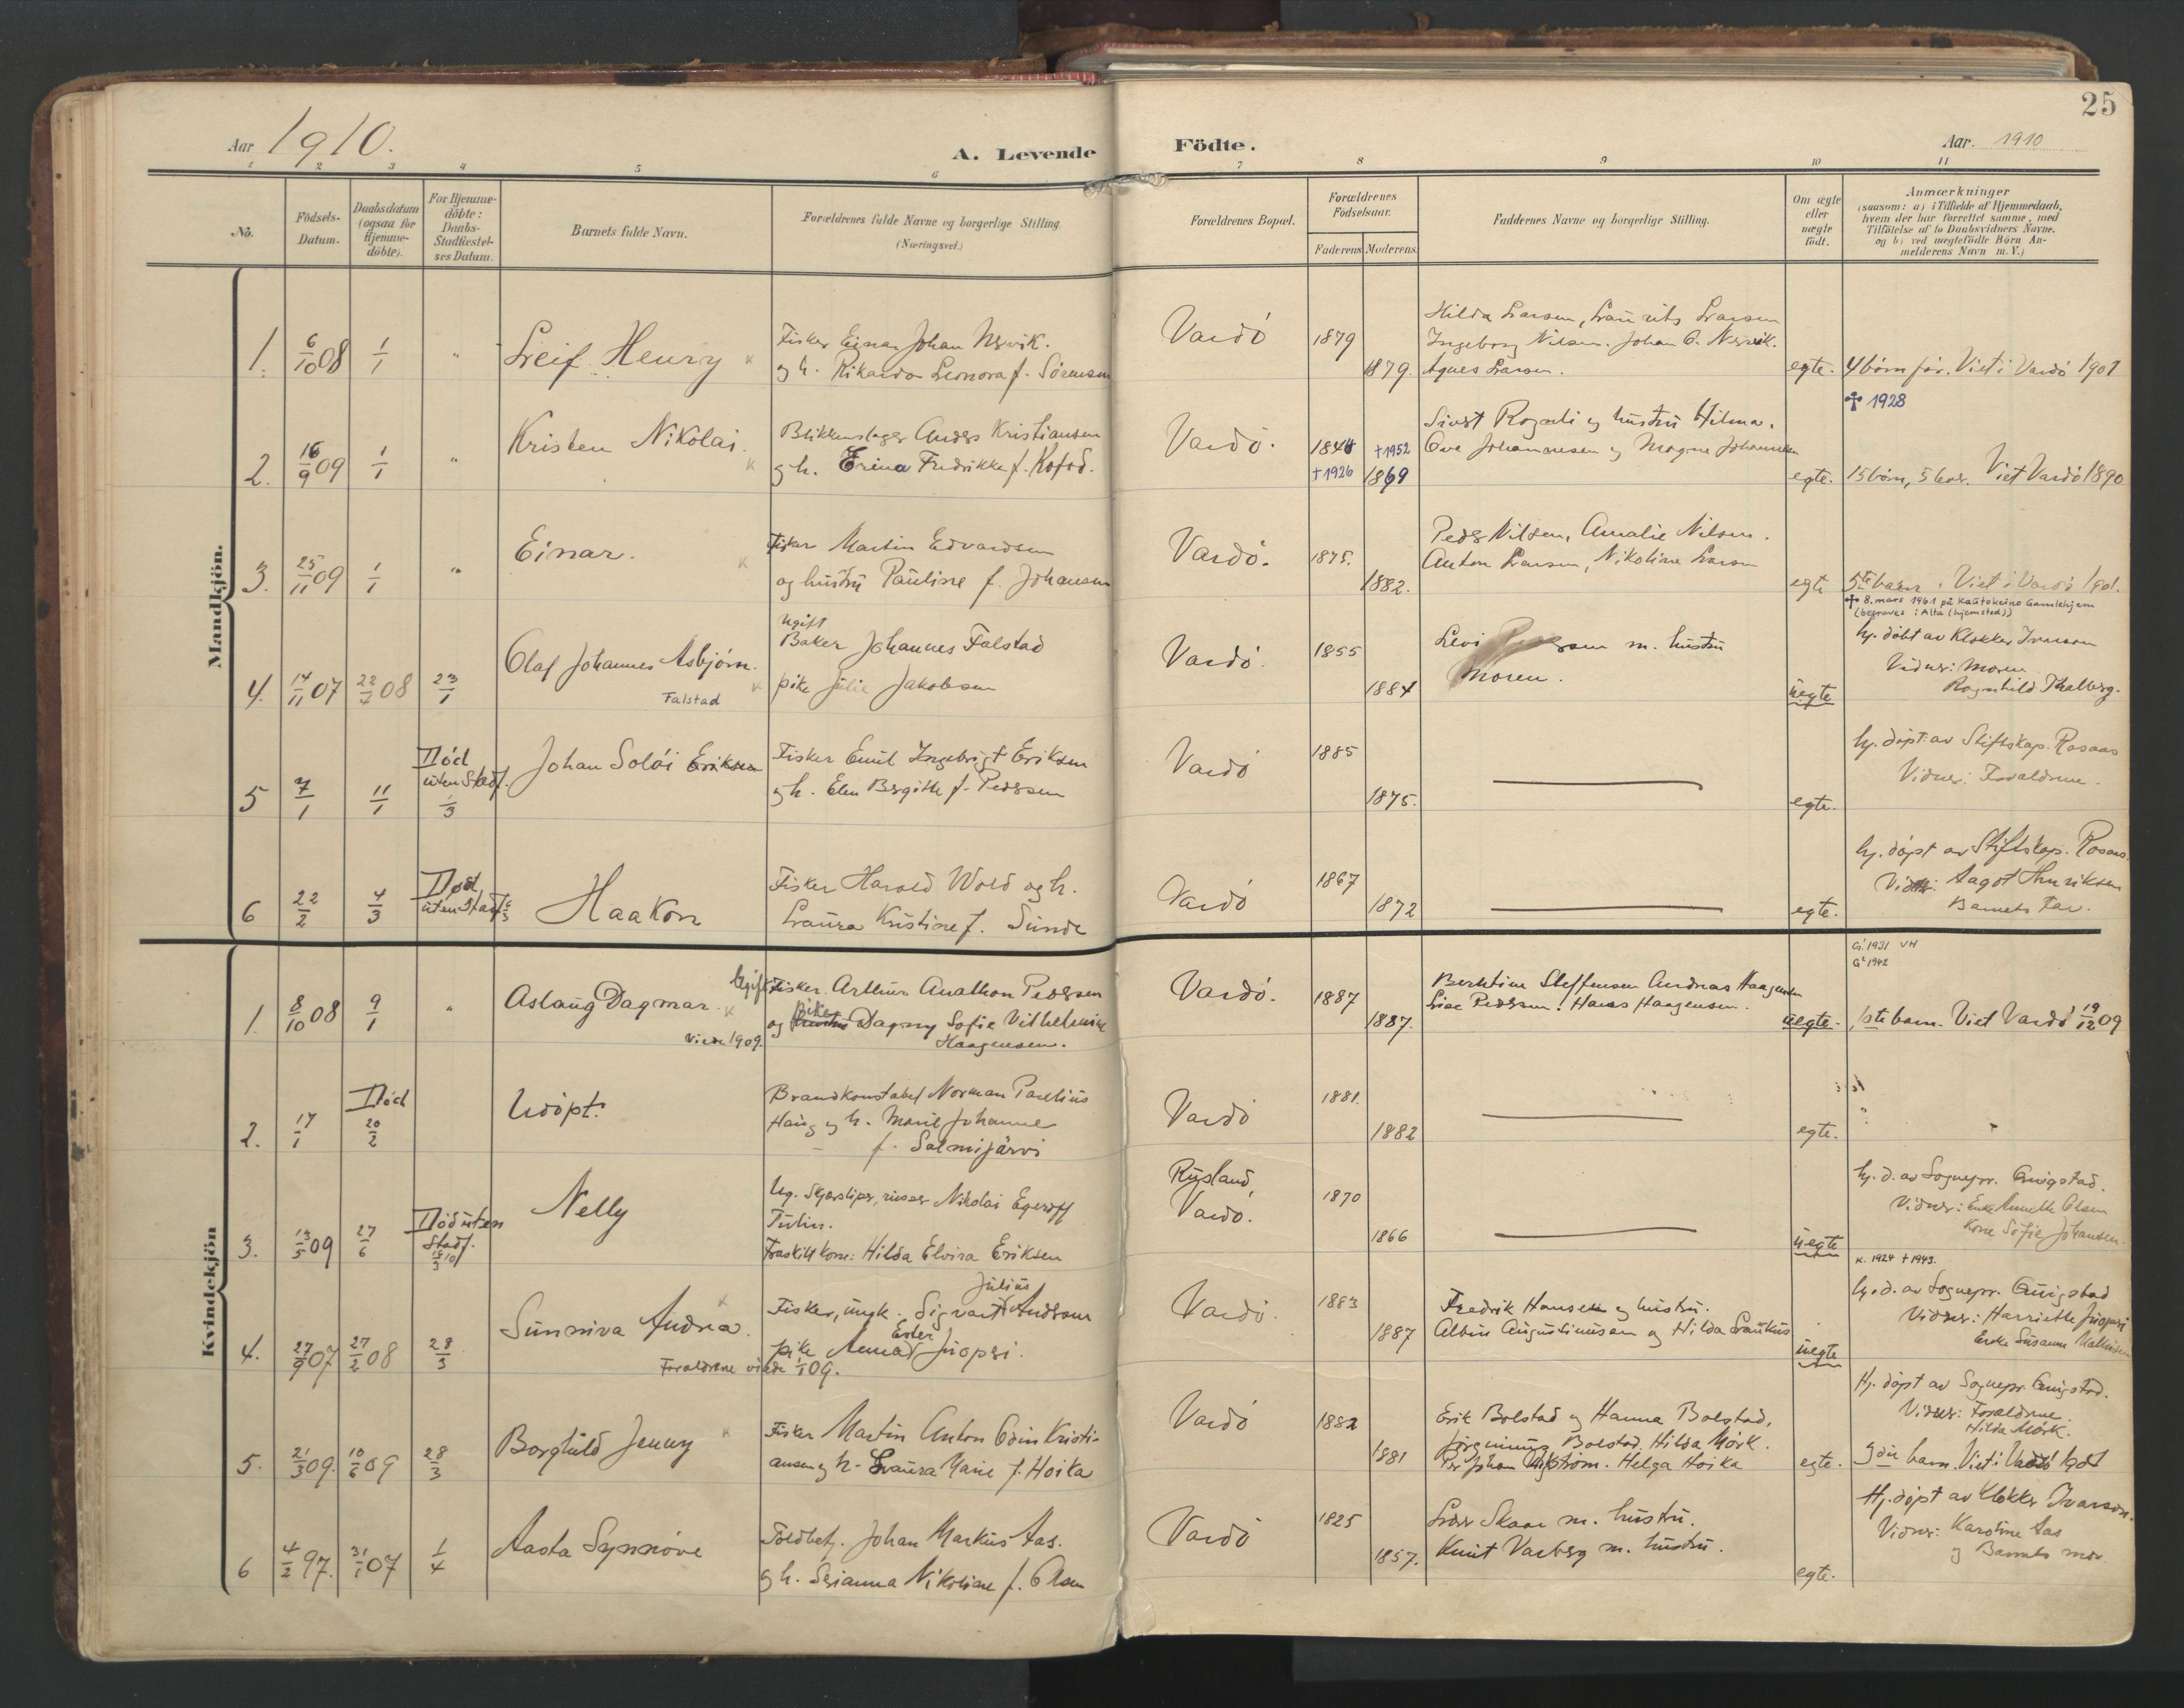 25
Aar 1910.
A. Levende Födte.
Aar. 1910
1 2 3 4 5 6 7 8 9 10 11
No.
Födsels-
Datum.
Daabsdatum
(ogsaa for
Hjemme-
döbte).
For Hjemme-
döbte:
Daabs-
Stadfæstel-
ses Datum.
Barnets fulde Navn.
Forældrenes fulde Navne og borgerlige Stilling
(Næringsvei.)
Forældrenes Bopæl.
Forældrenes
Födselsaar.
Faderens Moderens
Faddernes Navne og borgerlige Stilling.
Om ægte
eller
uægte
födt.
Anmærkninger
(saasom: a) i Tilfælde af Hjemmedaab,
hvem der har forrettet samme, med
Tilföielse af to Daabsvidners Navne.
og b) ved uægtefödte Börn An-
melderens Navn m. V.)
Mandkjön.
1. 6/10 08 1/1 " Leif Henry
Fisker Einar Johan Nervik.
og h. Rikarda Leonora f. Sörensen
Vardö 1879 1879.
Hilda Larsen, Laurits Larsen
Ingeborg Nilsen. Johan O. Nervik.
Agnes Larsen.
egte. 4 börn för. Viet i Vardö 1901
2. 16/9 09 1/1 " Kristen Nikolai.
Blikkenslager Anders Kristiansen
og h. Erina Fredrikke f. Kofod.
Vardö. 1844 †1952
†1926 1869
Sivert Rogali og hustru Hilma.
Ove Johannesen og Magne Johannesen
egte. ✝ 1928
15 börn, 5 lever. Viet Vardö 1890
3. 25/11 09 1/1 " Einar.
Fisker Martin Edvardsen
og hustru Pauline f. Johansen
Vardö. 1875. 1882.
Peder Nilsen, Amalie Nilsen.
Anton Larsen, Nikoline Larsen
egte 5te barn. Viet i Vardö 1901.
✝ 8. mars 1961 på Kautokeino Gamlehjem
(begraves i Alta (hjemsted))
4. 14/11 07 22/4 08 23/1 Olaf Johannes Asbjörn.
Falstad
Ugift
Baker Johannes Falstad
pike Julie Jakobsen
Vardö. 1855 1884
Levi m. hustru
Moren.
uegte
hj. döbt av Klokker Ivarson
Vidner: Moren
Ragnhild Thalberg.
5 7/1 11/1 Död
uten Stadf.
1/3
Johan Solöi Eriksen
Fisker Emil Ingebrigt Eriksen
og h. Elen Bergitte f. Pedersen
Vardö 1885 1875.
egte.
hj. döpt av Stiftskap. Rosaas
Vidner: Forældrene.
6 22/2 4/3 Död
uten Stadf.
Haakon
Fisker Harald Wold og h.
Laura Kristine f. Sunde
Vardö 1867 1872
egte.
hj. döpt av Stiftskap. Rosaas.
Vidner: Aagot Henriksen
Barnets Far.
Kvindekjön
1. 8/10 08 9/1 " Aslaug Dagmar.
Viede 1909.
Ugift Fisker Arthur Anathon Pedersen
og hustru pike Dagny Sofie Vilhelmine
Haagensen.
Vardö. 1887 1887.
Berntine Steffensen Andreas Haagensen
Lise Pedersen. Hans Haagensen.
uegte.
G¹ 1931 VH
G² 1942
1ste barn. Viet Vardö 19/12 09
2. 17/1 Död
20/2
Udöpt.
Brandkonstabel Norman Paulius
Haug og h. Marie Johanne
f. Salmijärvi
Vardö 1881. 1882
egte.
3. 13/5 09 27/6 Död uten
Stadf.
Nelly
Ug. Skjærsliper, russer Nikolai Egeroff
Tulin.
Fraskilt kone: Hilda Elvira Eriksen
Rusland,
Vardö. 1870 1866
uegte
hj. d. av Sognepr. Gurigstad.
Vidner: Enke Annette Olsen
Kone Sofie Johansen.
4. 27/9 07 27/2 08 28/3 Sunniva Andrea.
Forældrene viede 1/1 09.
Fisker, ungk. Sigvart Julius Andersen
pike Anna Ester Juopperi.
Vardö. 1883 1887
Fredrik Hansen og hustru.
Albin Augustinusen og Hilda Laukus
uegte
K. 1924 †1943.
hj. d. av Sognepr. Gurigstad
Vidner: Harriette Juopperi
Enke Susanne
5. 21/3 09. 10/6 09 28/3 Borghild Jenny
Fisker Martin Anton Odin Kristi-
ansen og h. Laura Marie f. Hoika
Vardö 1882 1881
Erik Bolstad og Hanna Bolstad.
Bolstad. Hilda Mörk.
Per Johan . Helga Hoika
egte.
Hj. döpt av Sognepr. Gurigstad.
Vidner: Forældrene.
Hilda Mörk.
3die barn. Viet i Vardö 1901
6 4/2 97. 31/1 07 1/4 Aasta Synnöve
Toldbetj. Johan Markus Aas.
og h. Serianna Nikoline f. Olsen
Vardö 1825 1857.
Skaar m. hustru.
Knut Varberg m. hustru.
egte.
Hj. döpt av Klokker Ivarson.
Vidner: Karoline Aas
og Barnets mor.